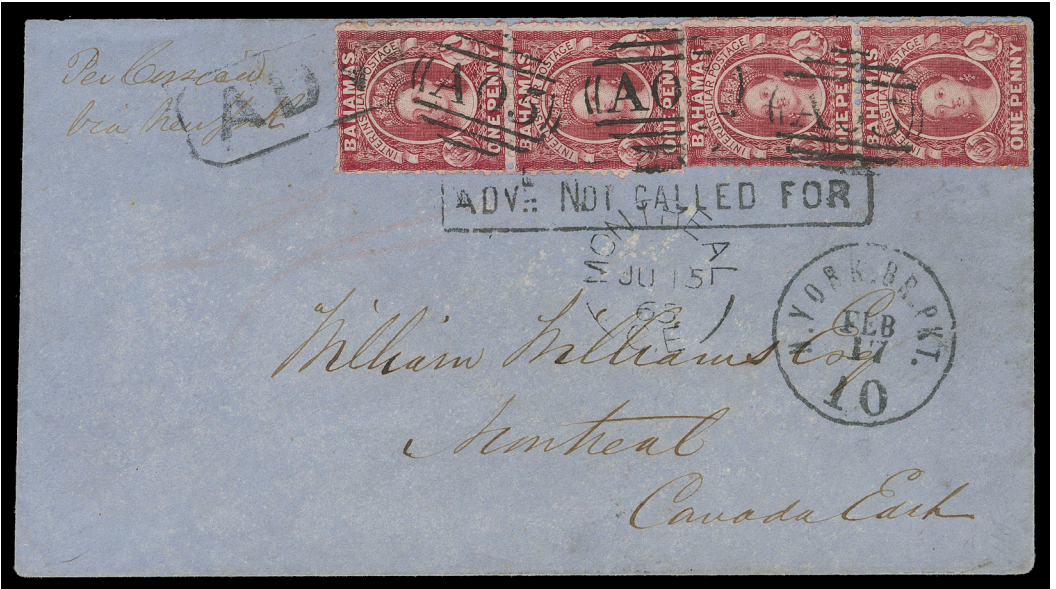 Per Corsica
via New York
BAHAMAS INTERINSULAR POSTAGE ONE PENNY
BAHAMAS INTERINSULAR POSTAGE ONE PENNY
BAHAMAS INTERINSULAR POSTAGE ONE PENNY
BAHAMAS INTERINSULAR POSTAGE ONE PENNY
A05
A05
A
ADVD NOT CALLED FOR
MONTREAL
JU 15
N. YORK. BR. PKT.
FEB
17
10
William Williams Esq
Montreal
Canada East